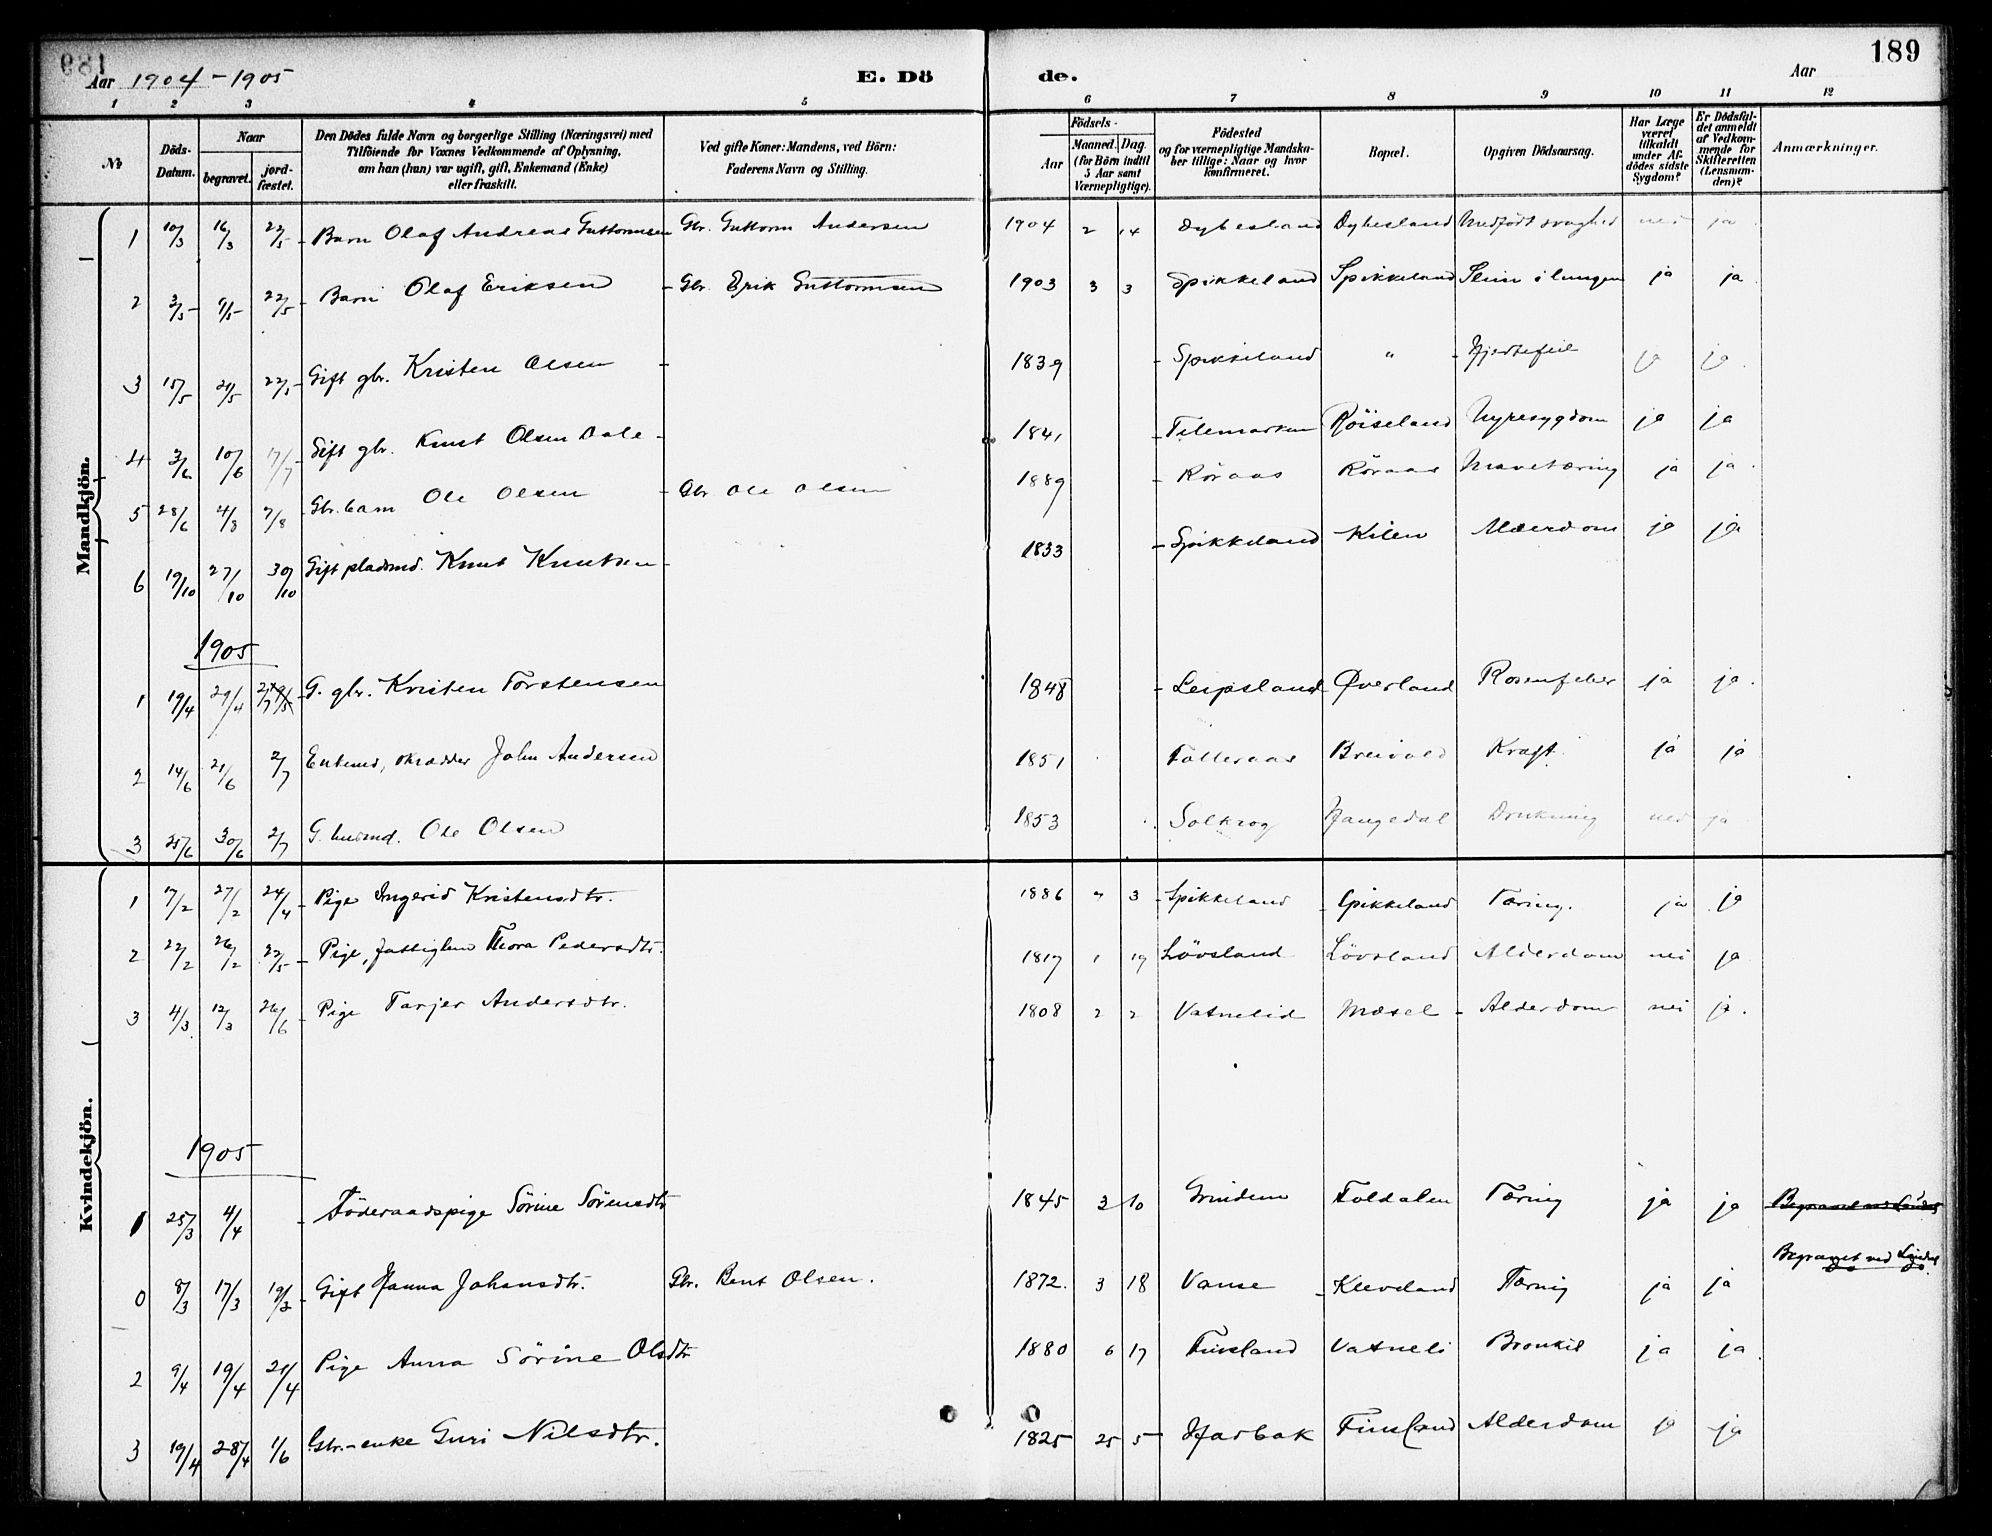 189
Aar 1904-1905 E. Dö de. Aar
1 2 3 4 5 6 7 8 9 10 11 12
№ Döds-Datum. Naar begravet. jordfæstet. Den Dödes fulde Navn og borgerlige Stilling (Næringsvei) med Tilföiende for Voxnes Vedkommende af Oplysning, om han (hun) var ugift, gift, Enkemand (Enke) eller fraskilt. Ved gifte Koner: Mandens, ved Börn: Faderens Navn og Stilling. Födsels- Aar Maaned. Dag. (for Börn indtil 5 Aar samt Værnepligtige). Födested og for værnepligtige Mandskaber tillige: Naar og hvor konfirmeret. Bopæl. Opgiven Dödsaarsag. Har Læge været tilkaldt under Afdödes sidste Sygdom? Er Dödsfaldet anmeldt af Vedkommende for Skifteretten (Lensmanden)? Anmærkninger.
Mandkjön.
1 10/3 16/3 22/5 Barn Olaf Andreas Guttormsen Gbr. Guttorm Andersen 1904 2 14 Dybesland Dybesland Medfödt svaghed nei ja
2 3/5 9/5 22/5 Barn Olaf Eriksen Gbr. Erik Guttormsen 1903 3 3 Spikkeland Spikkeland Slim i lungen ja ja
3 15/5 21/5 22/5 Gift gbr. Kristen Olsen 1839 Spikkeland " Hjertefeil ja ja
4 3/6 10/6 17/7 Gift gbr. Knut Olsen Dale 1841 Telemarken Röiseland Nyresygdom ja ja
5 28/6 4/8 7/8 Gbr. barn Ole Olsen Gbr Ole Olsen 1889 Röraas Röraas Mavetæring ja ja
6 19/10 27/10 30/10 Gift pladsmd. Knut Knutsen 1833 Spikkeland Kilen Alderdom ja ja
1905
1 19/4 29/4 2/7 G. gbr. Kristen Torstensen 1848 Leipsland Øverland Rosenfeber ja ja
2 14/6 21/6 2/7 Enkemd, skrædder John Andersen 1851 Kræft ja ja
3 25/6 30/6 2/7 G. husmd. Ole Olsen 1853 Solkrog Drukning nei ja
Kvindekjön.
1 17/2 27/2 24/4 Pige Ingerid Kristensdtr. 1886 " 3 Spikkeland Spikkeland Tæring. ja ja
2 22/2 26/2 22/5 Pige, fattiglem Thora Pedersdtr. 1817 1 19 Lövsland Lövsland Alderdom nei ja
3 4/3 12/3 26/6 Pige Tarjer Andersdtr. 1808 2 2 Vatnelid Mæsel Alderdom nei ja.
1905
1 25/3 4/4 Föderaadspige Sörine Sörensdtr 1845 3 10 Grindem Foldalen Tæring ja ja
0 8/3 17/3 19/3 Gift Hanna Johansdtr. Gbr. Bent Olsen. 1872. 3 18 Vanse Kleveland Tæring ja ja Begravet ved
2 9/4 19/4 21/4 Pige Anna Sörine Olsdtr 1880 6 17 Finsland Vatneli Bronkit ja ja
3 19/4 28/4 1/6 Gbr.-enke Guri Nilsdtr. 1825 25 5 Harbak Finsland Alderdom ja ja